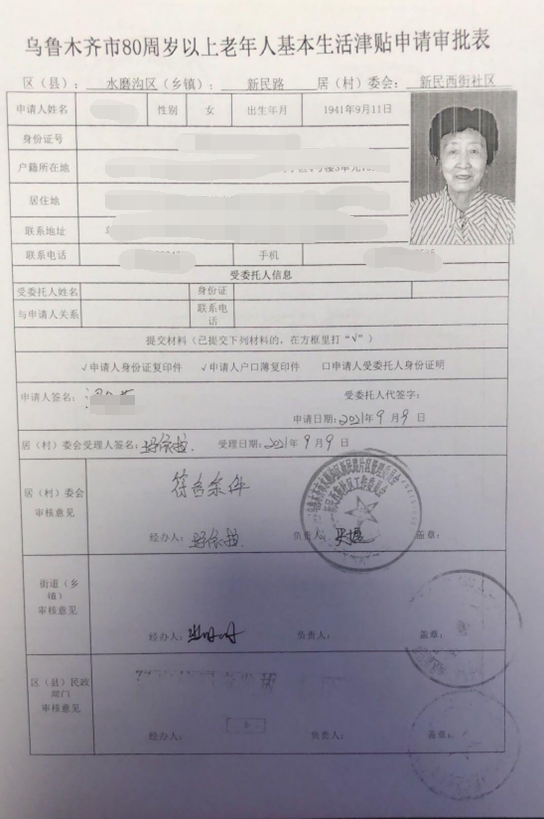 乌鲁木齐市80周岁以上老年人基本生活津贴申请审批表
区（县）： 水磨沟区（乡镇）： 新民路 居（村）委会： 新民西街社区
申请人姓名 性别 女 出生年月 1941年9月11日
身份证号
户籍所在地
居住地
联系地址
联系电话 手机
受委托人信息
受委托人姓名 身份证
与申请人关系 联系电话
提交材料（已提交下列材料的，在方框里打“√”）
√申请人身份证复印件 √申请人户口薄复印件 口申请人受委托人身份证明
申请人签名： 受委托人代签字：
申请日期：2021年9月9日
居（村）委会受理人签名： 受理日期：2021年9月9日
居（村）委会
审核意见
符合条件
经办人： 负责人： 盖章：
街道（乡
镇）
审核意见
经办人： 负责人： 盖章：
区（县）民政
部门
审核意见
经办人： 负责人： 盖章：